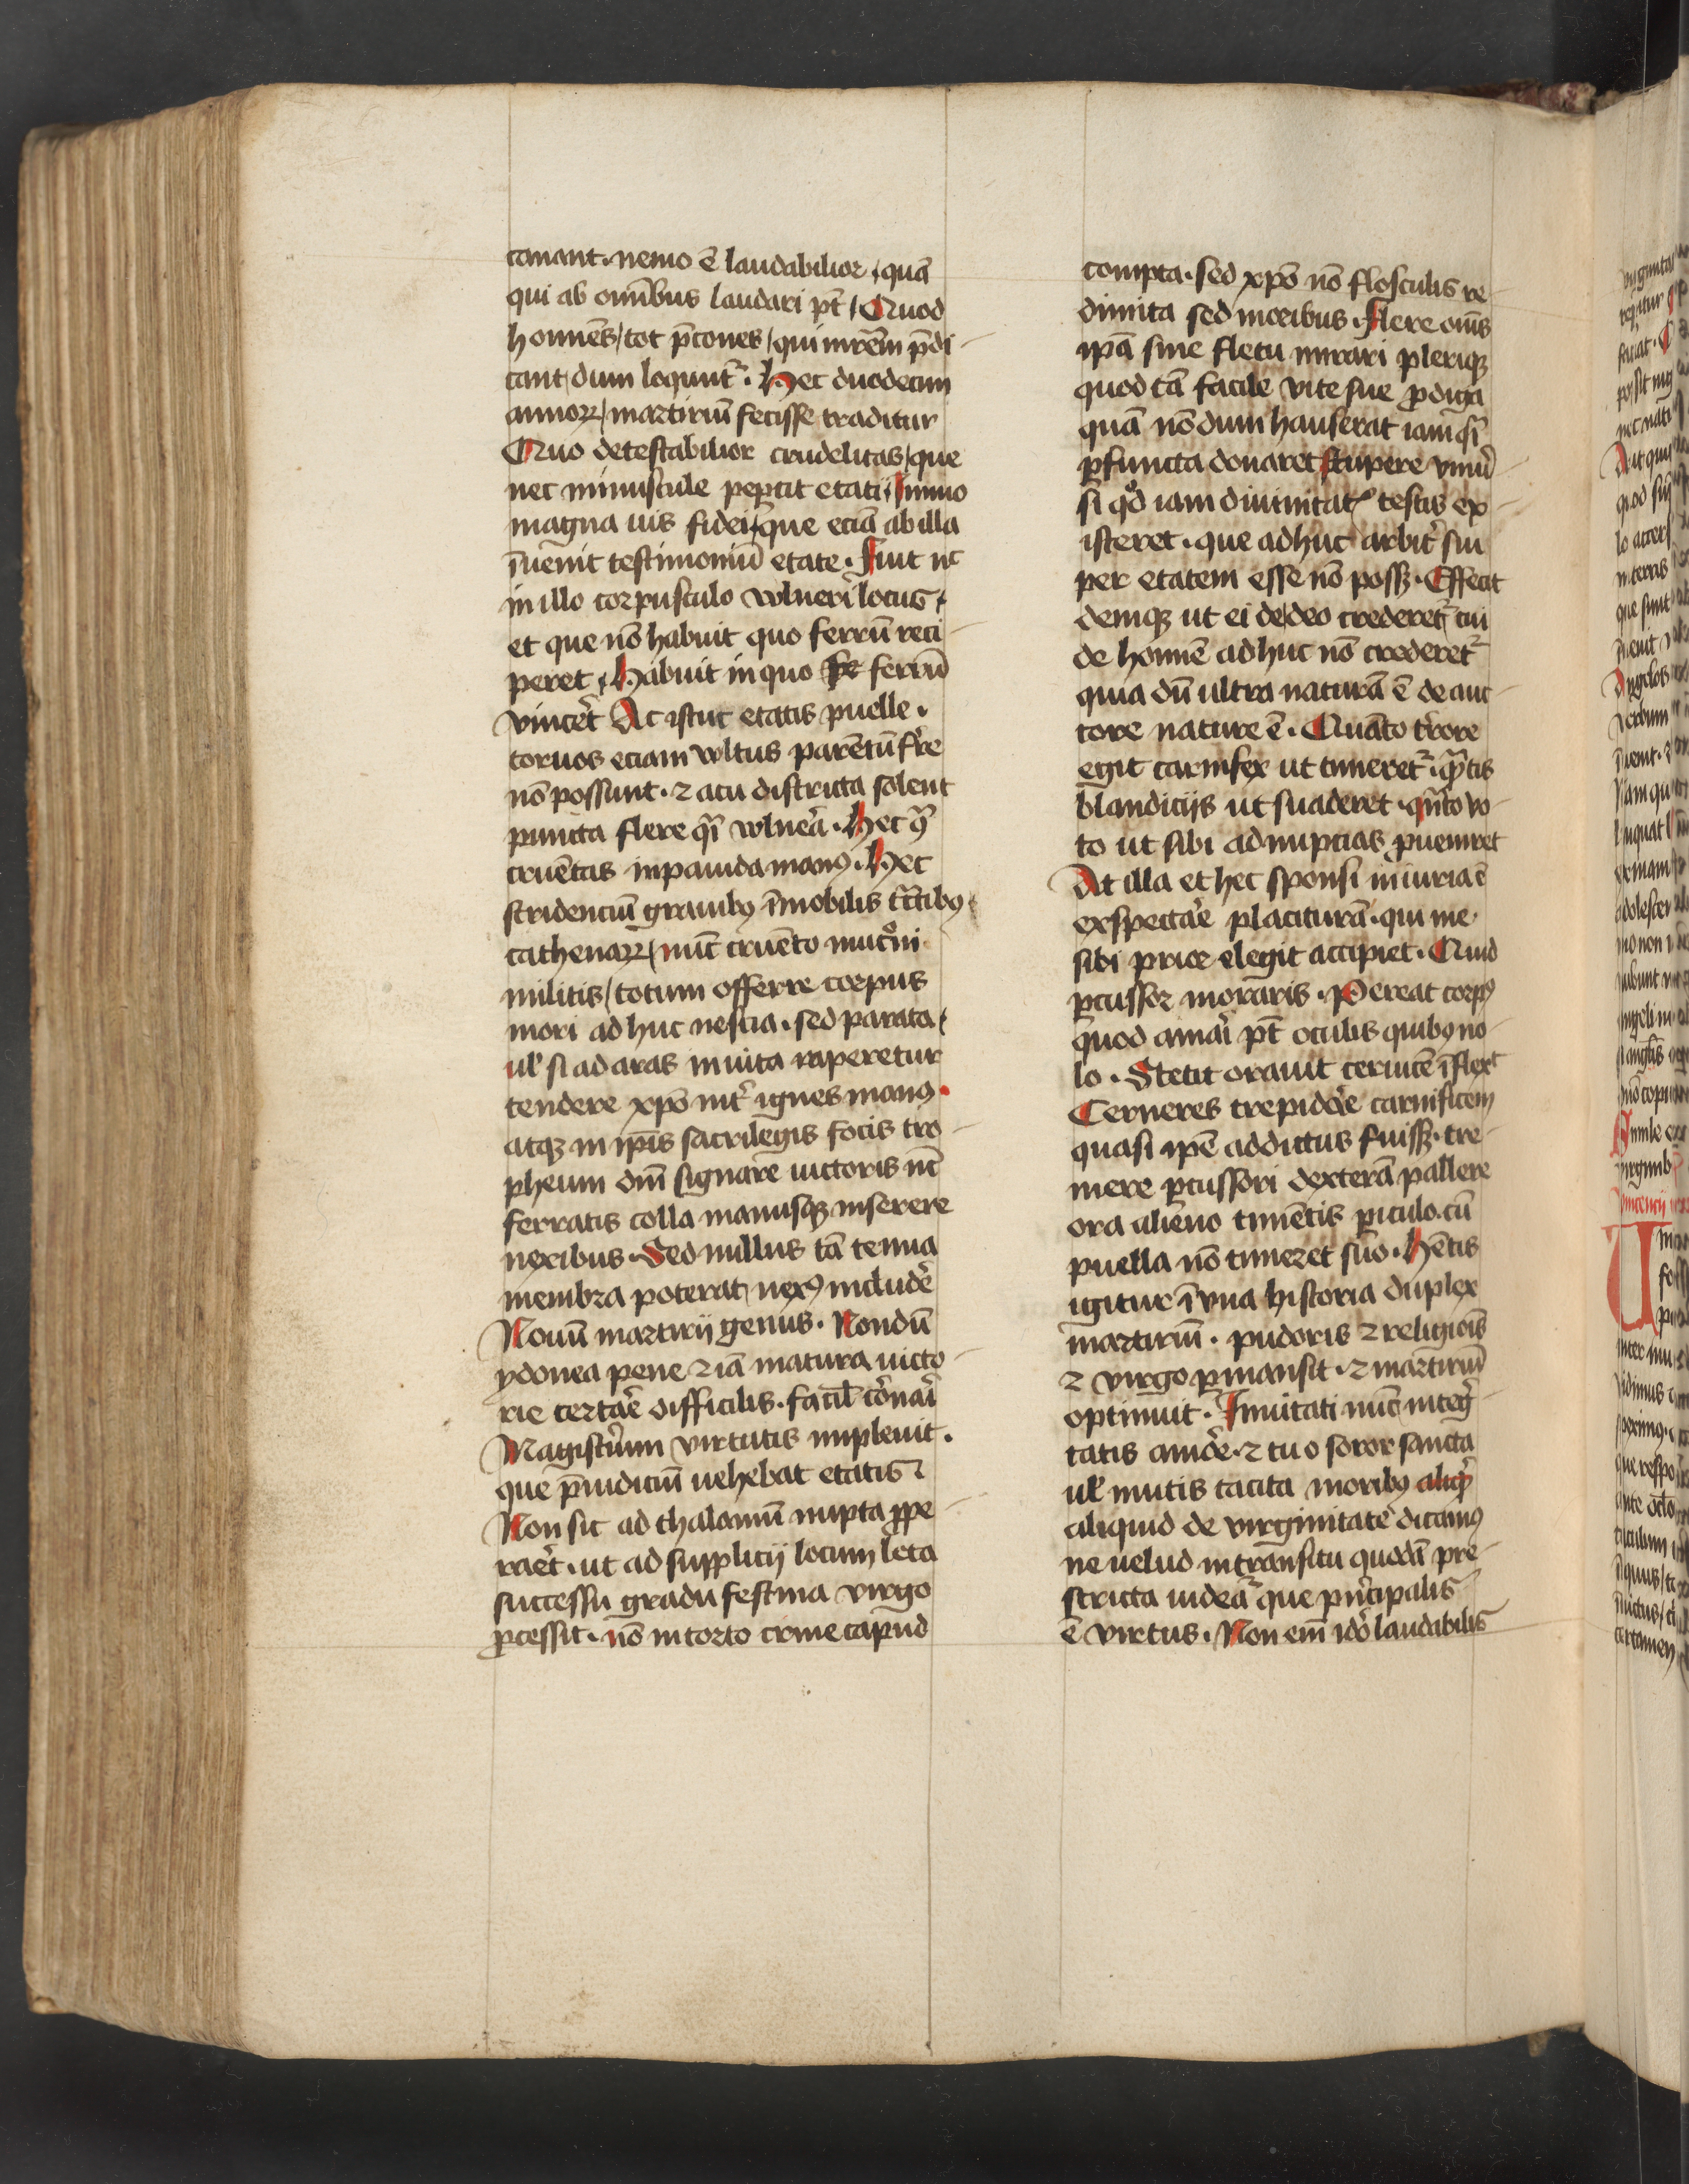 canant. nemo ē laudabilior, quā
qui ab omībus laudari pt̄, Quod
homīes, tot p̄cones, qui mr̄em p̄di-
cant dum loquunt᷑. Hec duodecim
annoꝝ, martiriū fecisse traditur
Quo detestabilior crudelitas, que
nec minuscule peꝑcit etati, Immo
magna uis fidei, que eciā ab illa
īuenit testimoniū etate. Fuit ne
in illo corpusculo vulneri locus,
et que nō habuit quo ferrū reci-
peret, Habuit in quo ferrū
vincer̄t At istuc etatis puelle.
toruos eciam vultus parentū fr̄re
nō possunt. ⁊ acu districta solent
puncta flere qͣsi vulnerā. Hec
cruētas inpauida manꝰ. Hec
stridenciū grauibꝰ īmobilis tͣctibꝰ
cathenaꝝ, nūc cruēto mucͦni
militis, totum offerre corpus
mori adhuc nescia. sed parata,
ul̓ si ad aras inuita raperetur
tendere xp̄o int᷑ ignes manꝰ.
atqꝫ in ip̄is sacrilegis focis tro-
pheum dn̄i signare uictoris nūc
ferratis colla manusqꝫ inserere
nexibus. Sed nullus tā tenua
membra poterat nexꝰ includer̄e
Nouū martirij genus. Nondū
ydonea pene ⁊ iā matura uicto-
rie certar̄e difficilis. facil̓ cͦronari
Magisterium virtutis impleuit.
que p̄iudiciū uehebat etatis
Non sic ad thalamū nupta ꝓpe-
rar̄et. ut ad supplicij locum leta
successu gradu festina virgo
ꝓcessit. nō intorto crine capud
compta. sed xp̄o nō flosculis re-
dimita sed moribus. Flere om̄s
ip̄ā sine fletu mirari pleriqꝫ
quod tā facile vite sue ꝓdiga
quā nōdum hauserat iam qͣsi
ꝑfuncta donaret stupere vniuer̄-
si qͦd iam diuinitatꝭ testis ex-
isteret. que adhuc arbit᷑ sui
per etatem esse nō possꝫ. Effecit
deniqꝫ ut ei de deo crederet᷑ cui
de homīe adhuc nō crederet᷑
quia dū ultra naturā ē de auc-
tore nature ē. Quāto t᷑rore
egit carnifex ut timeret᷑. qͣntis
blandicijs ut suaderet. qͣnto vo-
to ut sibi ad nupcias ꝓueniret
At illa et hec sponsi iniuria ē
exspectar̄e placiturā. qui me
sibi prior elegit accipiet. Quid
ꝑcussor moraris. Pereat corpꝰ
quod amari pt̄ oculis quibꝰ no-
lo. Stetit orauit ceruicē īflexͭ
Cerneres trepidar̄e carnificem
quasi ip̄e addictus fuissꝫ. tre-
mere ꝑcussori dexterā pallere
ora alieno timētis ꝑiculo. cū
puella nō timeret suo. Hētis
igitur ī vna historia duplex
martiriū. pudoris ⁊ religiōis
⁊ virgo ꝑmansit. ⁊ martiriū
optinuit. Inuitati nūc integ᷑-
tatis amor̄e. ⁊ tu o soror sancta
ul̓ mutis tacita moribꝰ
aliquid de virginitate dicamꝰ
ne uelud in transitu quodā pre-
stricta uidea᷑t que pͥncipalis
ē virtus. Non em̄ ido̓ laudabilis